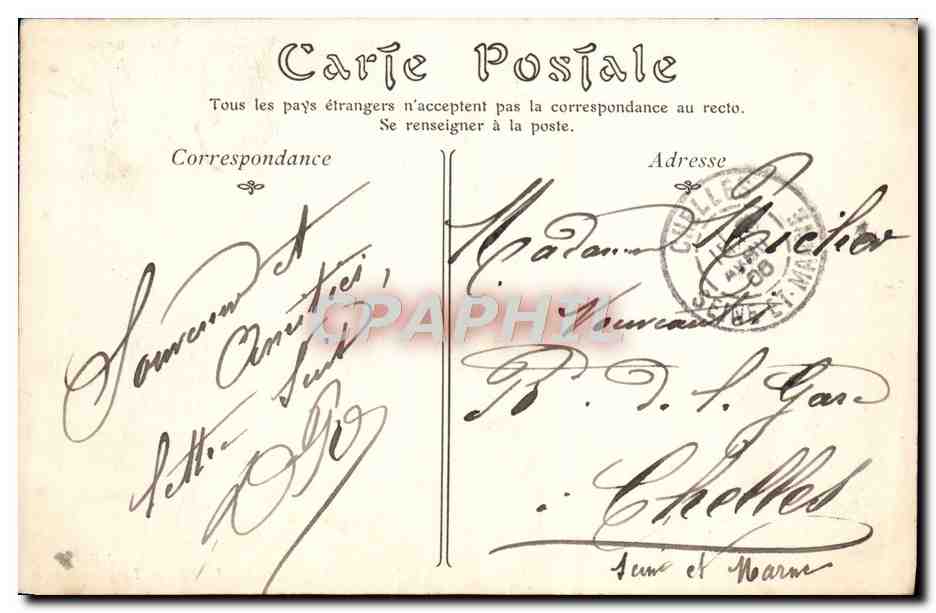 Carte Postale
Tous les pays étrangers n'acceptent pas la correspondance au recto.
Se renseigner à la poste.
Correspondance
Souvenir et
Amitiés,
lettre suit
Adresse
Madame
Nouveautés
B. d. l. Gare
à Chelles
Seine et Marne
CHELLES
AVRIL
06
SEINE-ET-MARNE
CPAPHIL